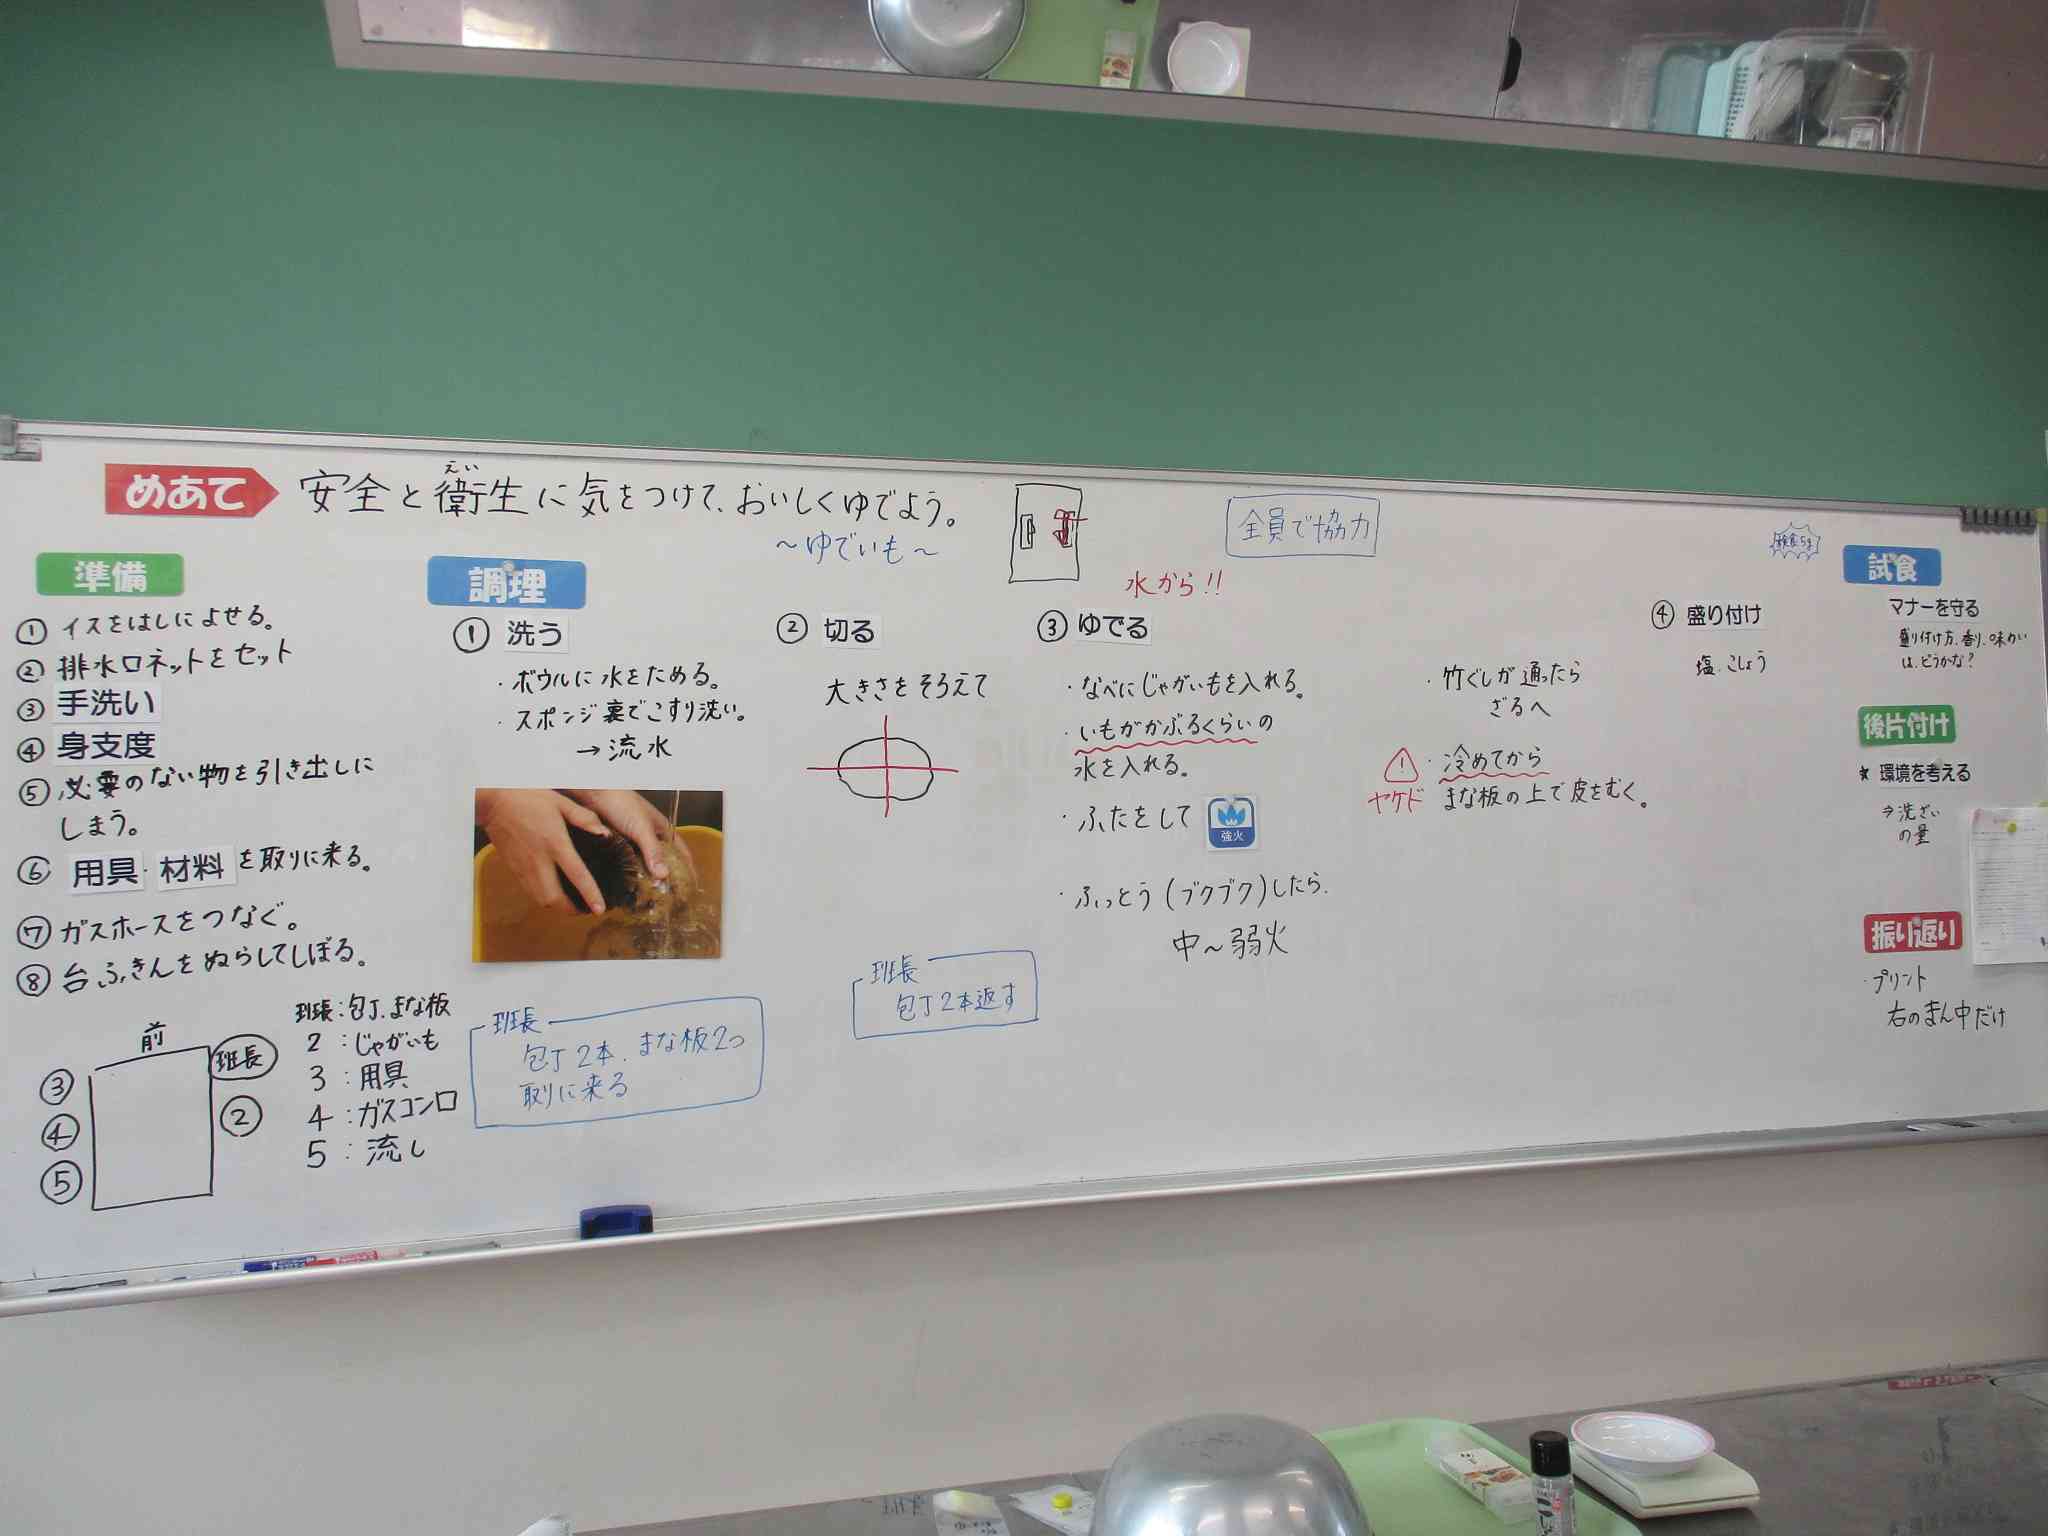 めあて
安全と衛生に気をつけて、おいしくゆでよう。
えい
~ゆでいも~
全員で協力
準備
① イスをはしによせる。
② 排水口ネットをセット
③ 手洗い
④ 身支度
⑤ 必要のない物を引き出しに
しまう。
⑥ 用具・材料を取りに来る。
⑦ ガスホースをつなぐ。
⑧ 台ふきんをぬらしてしぼる。
前
班長
③
②
④
⑤
班長:包丁、まな板
2:じゃがいも
3:用具
4:ガスコンロ
5:流し
調理
① 洗う
・ボウルに水をためる。
・スポンジ裏でこすり洗い。
→流水
班長
包丁2本、まな板2つ
取りに来る
② 切る
大きさをそろえて
班長
包丁2本返す
水から!!
③ ゆでる
・なべにじゃがいもを入れる。
・いもがかぶるくらいの
水を入れる。
・ふたをして
強火
・ふっとう(ブクブク)したら、
中~弱火
・竹ぐしが通ったら
ざるへ
!
ヤケド
・冷めてから
まな板の上で皮をむく。
④ 盛り付け
塩、こしょう
試食
マナーを守る
盛り付け方、香り、味わい
は、どうかな?
後片付け
★ 環境を考える
⇒洗ざい
の量
振り返り
・プリント
右のまん中だけ